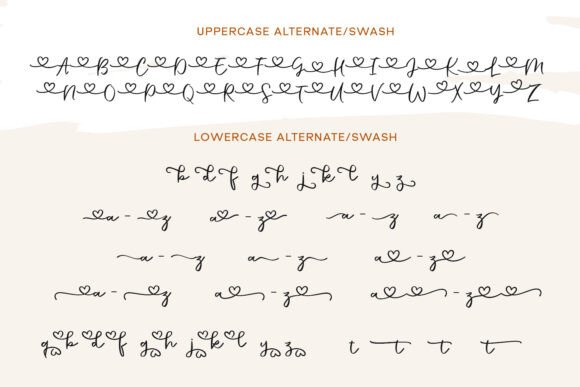 UPPERCASE ALTERNATE/SWASH
A B C D E F G H I J K L M
N O P Q R S T U V W X Y Z
LOWERCASE ALTERNATE/SWASH
b d f g h j k l y z
a - z a - z a - z a - z
a - z a - z a - z
a - z a - z a - z
g b d f g h j k l y z t t t t